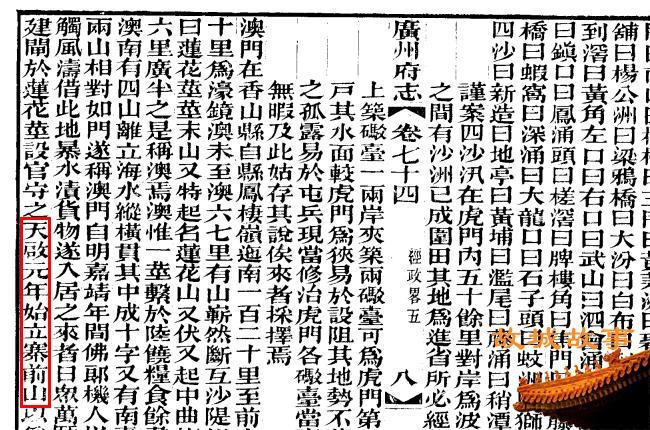 舖曰楊公洲曰梁鴉橋曰大汾曰白布
到滘曰黃角左口曰右口曰武山曰泗會涌
曰鎮口曰鳳涌頭曰槎滘曰牌樓角曰門
橋曰蝦窩曰深涌曰大龍口曰石子頭曰蚊
四沙曰新造曰地亭曰黃埔曰濫尾曰府涌曰稍潭
謹案四沙汛在虎門內五十餘里對岸爲波
之間有沙洲已成圍田其地爲進省所必經
廣州府志 卷七十四 經政畧五 八
上築礮臺一兩岸夾築兩礮臺可爲虎門第
戸其水面較虎門爲狹易於設阻其地勢不
之孤露易於屯兵現當修治虎門各礮臺當
無暇及此姑存其說俟來者採擇焉
澳門在香山縣自縣鳳棲嶺迤南一百二十里至前
十里爲濠鏡澳未至澳六七里有山嶄然斷亙沙隄
曰蓮花莖莖末山又特起名蓮花山又伏又起中曲
六里廣半之是稱澳焉澳惟一莖繫於陸饋糧食餘
澳南有四山離立海水縱橫貫其中成十字又有南
兩山相對如門遂稱澳門自明嘉靖年間佛郎機人
觸風濤借此地暴水漬貨物遂入居之來者日眾萬
建閘於蓮花莖設官守之天啟元年始立寨前山
故城故事